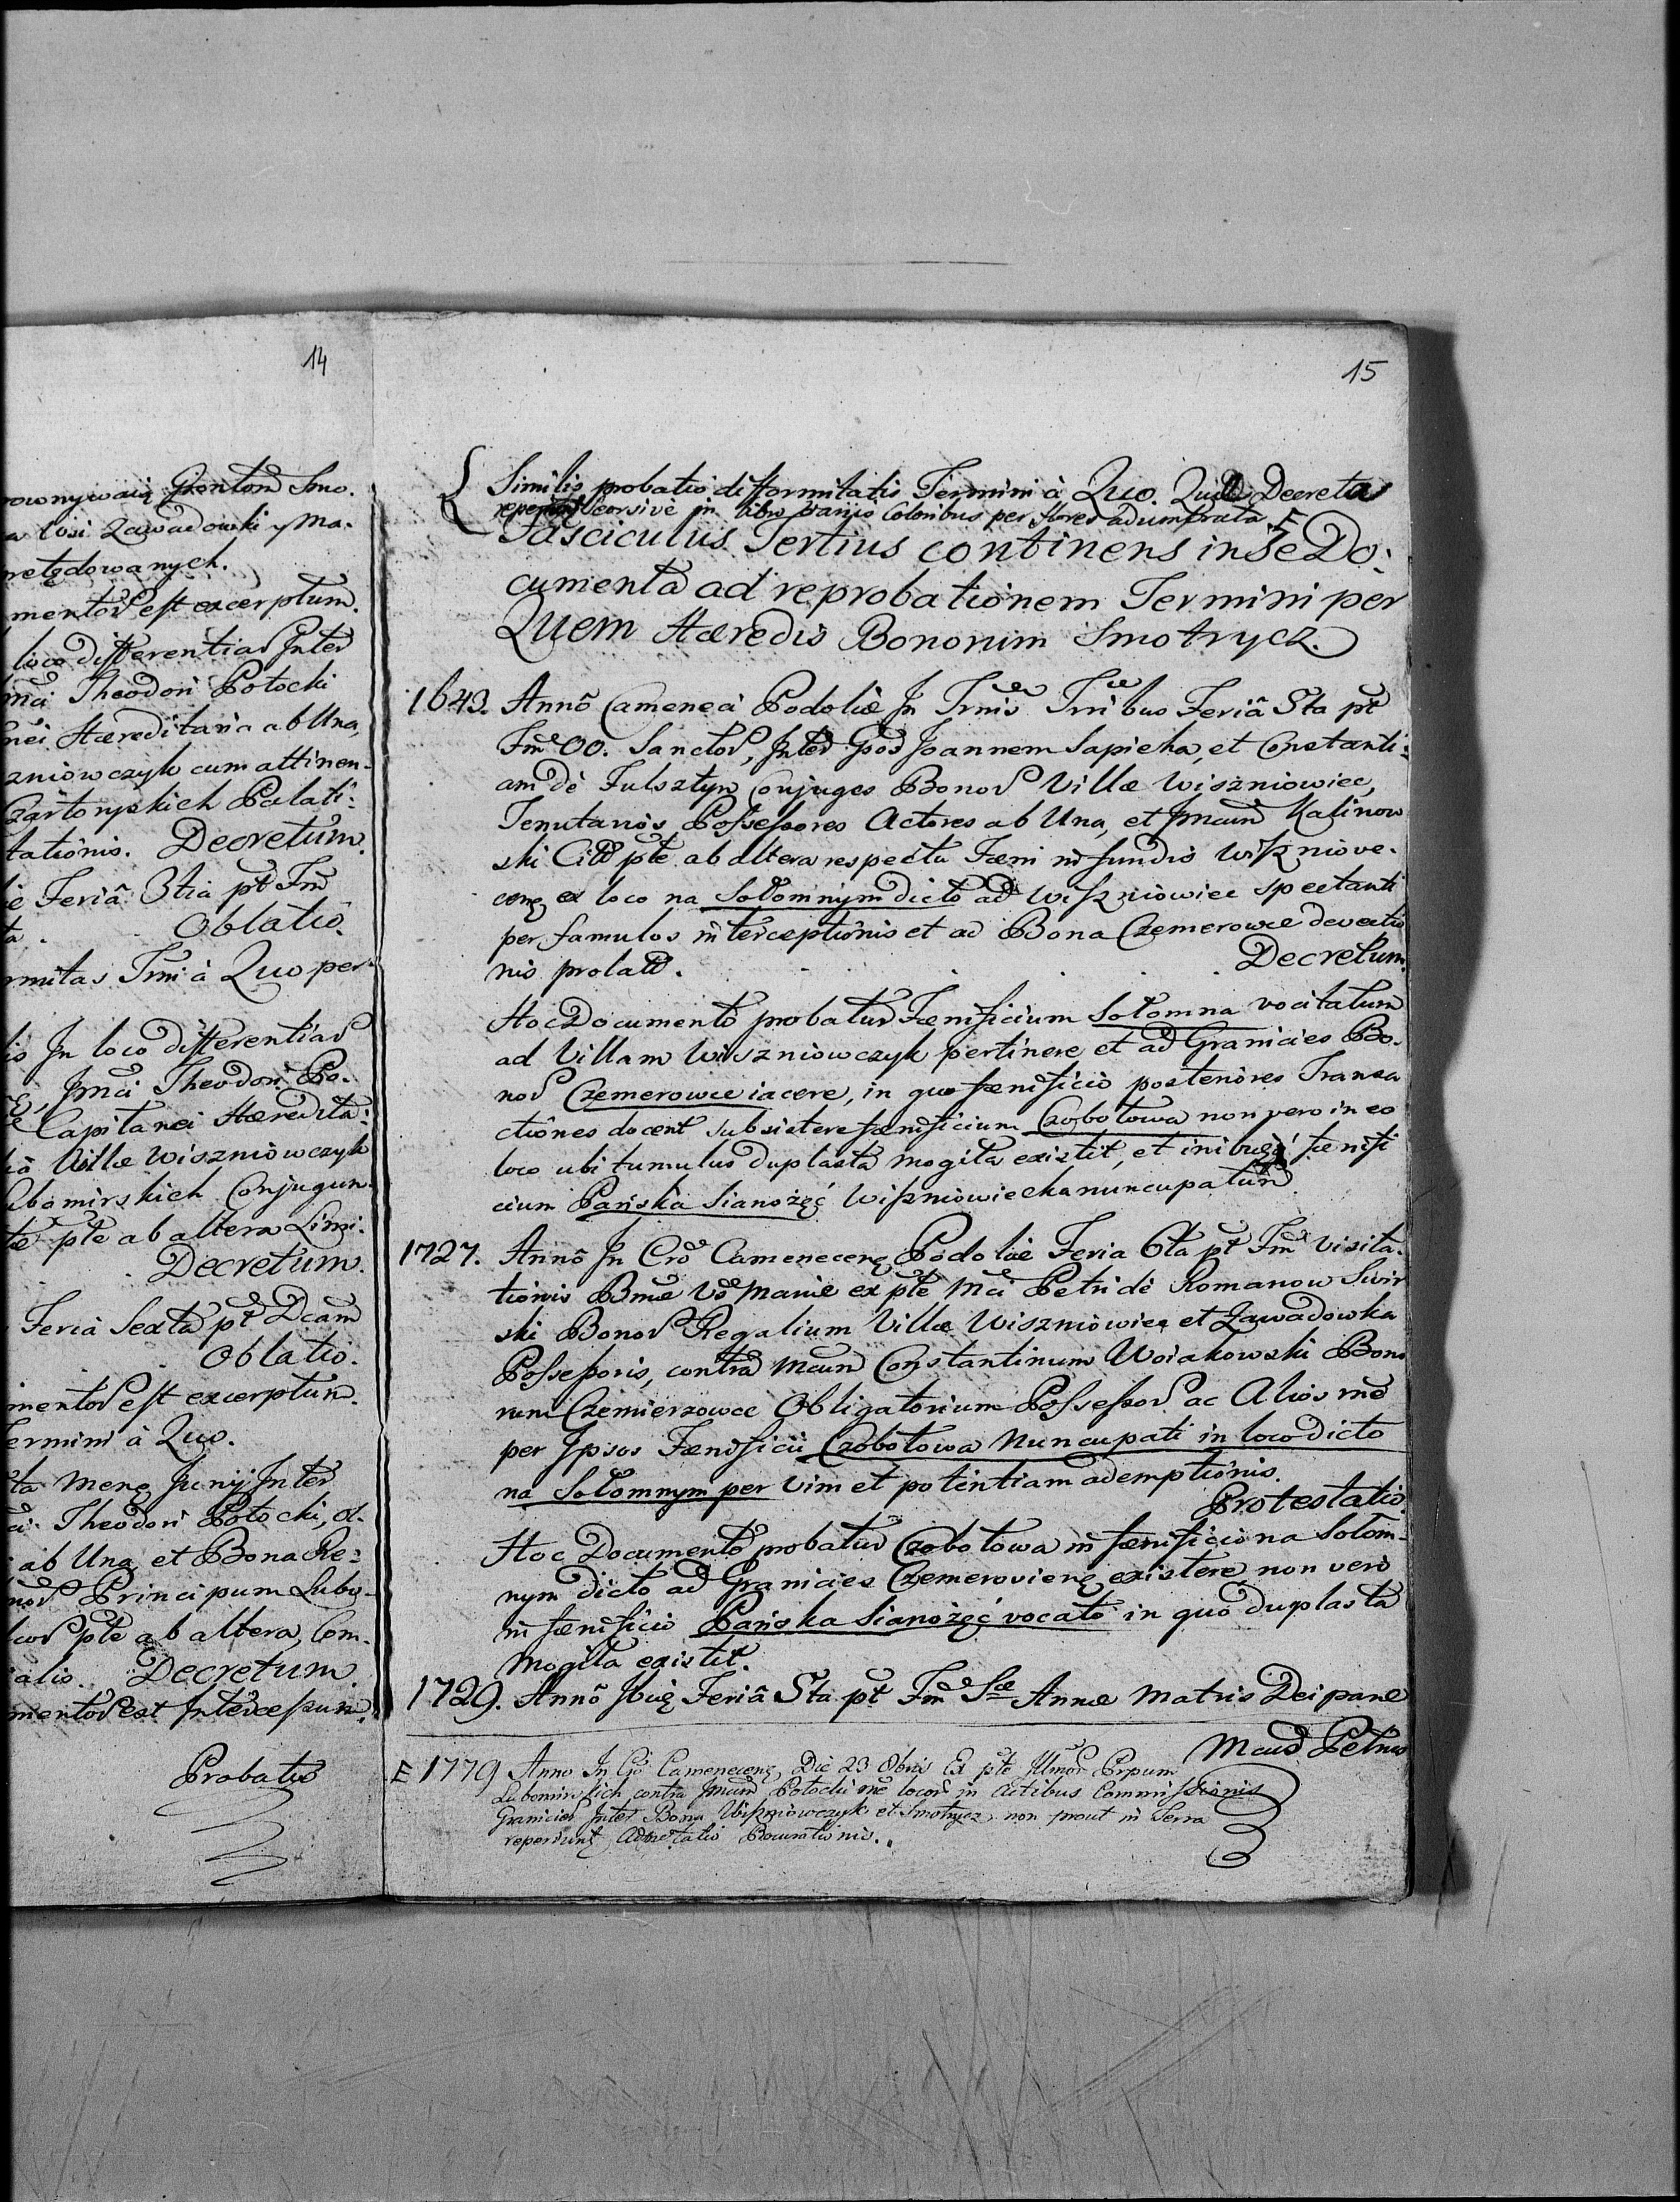 14
rownywaią Gontom Smo.
a Wsi Zawadowki y Ma.
pretędowanych.
mentor est excerptum.
loco differentiar Inter
Theodori Potocki
nei Hæreditaria ab Una,
zniowczyk cum attinen-
Czartoryskich Palati:
tationis. Decretum.
Feriâ 3tia pt Fm
Oblatio.
rmitas Trni à Quo per-
In loco differentiar
Jmci Theodori Po-
Capitanei Hæredita:
Villæ Wiszniowczyk
ubomirskich Conjugum
pte ab altera Limi:
Decretum.
Feriâ Sexta pt Dcam
Oblatio.
mentor est excerptum.
ermini à Quo.
ta Mens Junij Inter
Theodori Potocki,
ab Una et Bona Re:
Principum Lubo-
pte ab altera, Com-
alis. Decretum.
mentor est Intercessum.
Probatio
15
Similis probatio difformitatis Termini à Quo. Quæ Decreta
reperiuntur seorsive in libro variis Coloribus per flores adumbrata E
Fasciculus Tertius continens in Se Do:
cumenta ad reprobationem Termini per
Quem Hæredis Bonorum Smotrycz.
1643. Annô Cameneci Podoliæ In Trnis Trribus Feriâ 5ta pt
Fm OO. Sanctor, Inter Gos Joannem Sapieha, et Constanti:
am de Fulsztyn Conjuges Bonor Villæ Wiszniowiec,
Tenutarios Possessores Actores ab Una, et Jmcum Kalinow
ski Citt pte ab altera respectu Fæni in fundis Wiszniove-
cens ex loco na Solomnym dicto ad Wiszniowiec spectanti
per famulos interceptionis et ad Bona Czemerowce devectio
nis prolatt. Decretum.
Hoc Documento probatur Fænificium Solomna vocitatum
ad Villam Wiszniowczyk pertinere et ad Granicies Bo-
nor Czemerowce iacere, in quo fænificio posteriores Transa
ctiones docent subsistere fænificium Czobotowa non vero in eo
loco ubi tumulus duplasta mogiła existit, et inibiq fænifi
cium Pańska Sianożęć Wiszniowiecka nuncupatur.
1727. Annô In Cro Camenecens Podoliæ Feria 6ta pt Fm Visita-
tionis Bmæ Vs Mariæ ex pte Mci Petri de Romanow Swir
ski Bonor Regalium Villæ Wiszniowiec et Zawadowka
Possessoris, contra Mcum Constantinum Woiakowski Bono
rum Czemierzowce Obligatorium Possessor ac Alios rne
per Ipsos Fænificii Czobotowa Nuncupati in loco dicto
na Solomnym per vim et potentiam ademptionis.
Protestatio.
Hoc Documento probatur Czobotowa in fænificio na Solom-
nym dicto ad Granicies Czemeroviens existere, non vero
in fænificio Pańska Sianożęć vocato in quo duplasta
mogiła existit.
1729. Annô Ibid Feriâ 5ta pt Fm Scæ Annæ Matris Deiparæ
Mcus Petrus
E 1779 Anno In Cro Camenecens, Die 23 Obris Ex pte Illmor Prpum
Lubomirskich contra Jmcum Potocki rne locor in Actibus Commissionis
Granicier Inter Bona Wiszniowczyk et Smotrycz non prout in Terra
reperiunt Adnotatio Procurationis.